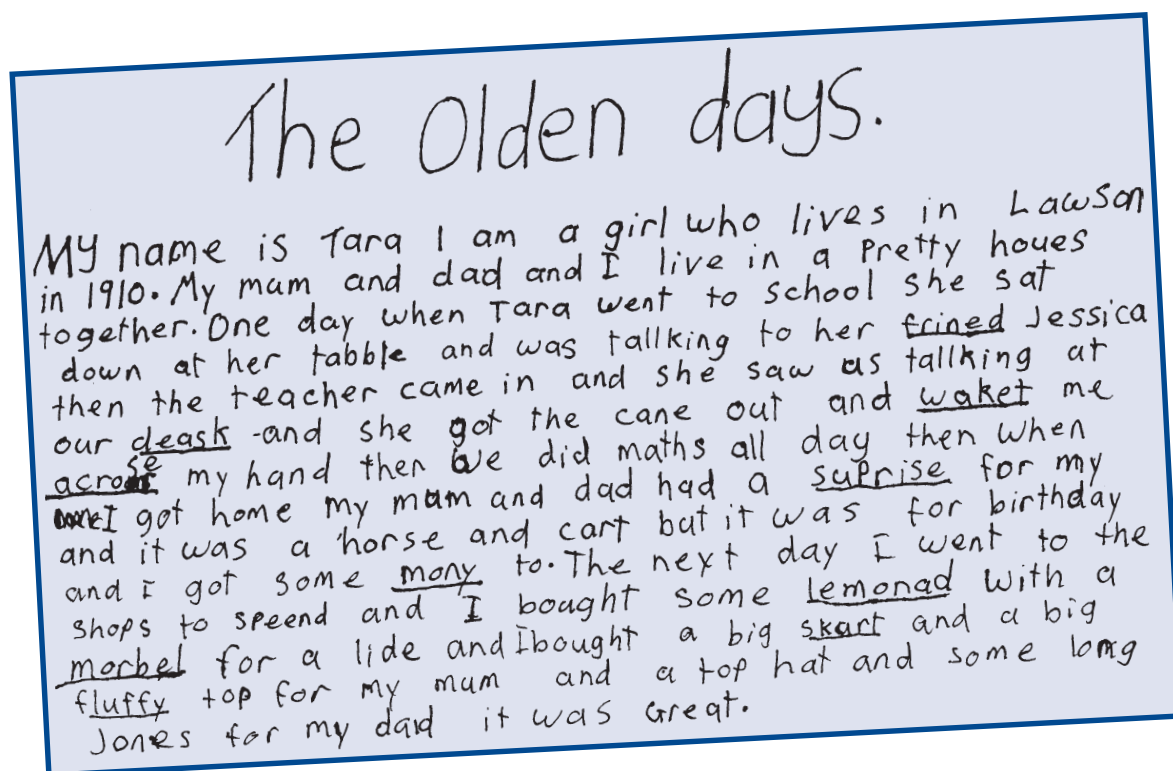 The Olden days.
My name is Tara I am a girl who lives in Lawson
in 1910. My mum and dad and I live in a Pretty houes
together. One day when Tara went to school she sat
down at her tabble and was tallking to her frined Jessica
then the teacher came in and she saw us tallking at
our deask and she got the cane out and waket me
acrose my hand then we did maths all day then when
I got home my mum and dad had a suprise for my
and it was a horse and cart but it was for birthday
and I got some mony to. The next day I went to the
shops to speend and I bought some lemonad with a
morbel for a lide and I bought a big skart and a big
fluffy top for my mum and a top hat and some long
Jones for my dad it was Great.